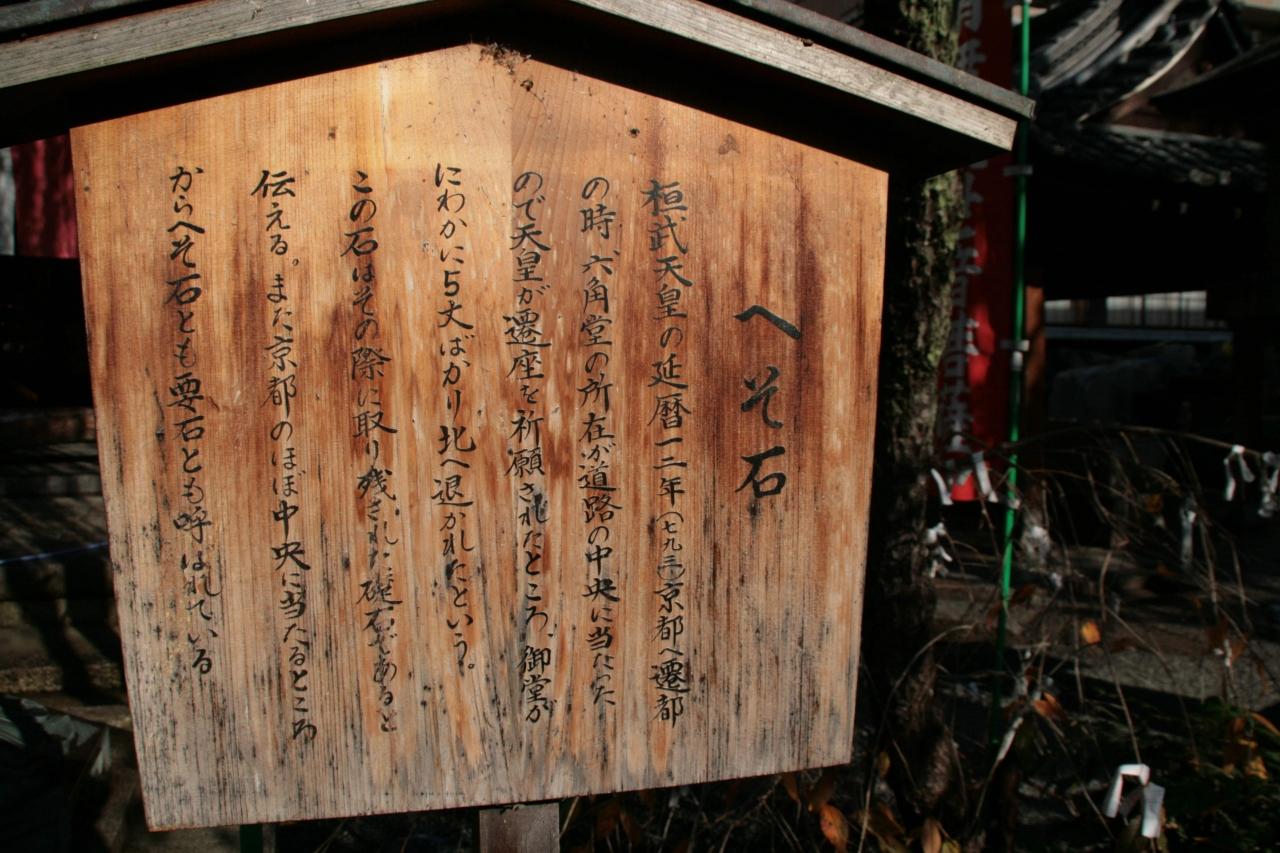 へそ石
桓武天皇の延暦一二年(七九三)京都へ遷都
の時、六角堂の所在が道路の中央に当たった
ので天皇が遷座を祈願されたところ、御堂が
にわかに5丈ばかり北へ退かれたという。
この石はその際に取り残された礎石であると
伝える。また京都のほぼ中央に当たるところ
からへそ石とも要石とも呼ばれている